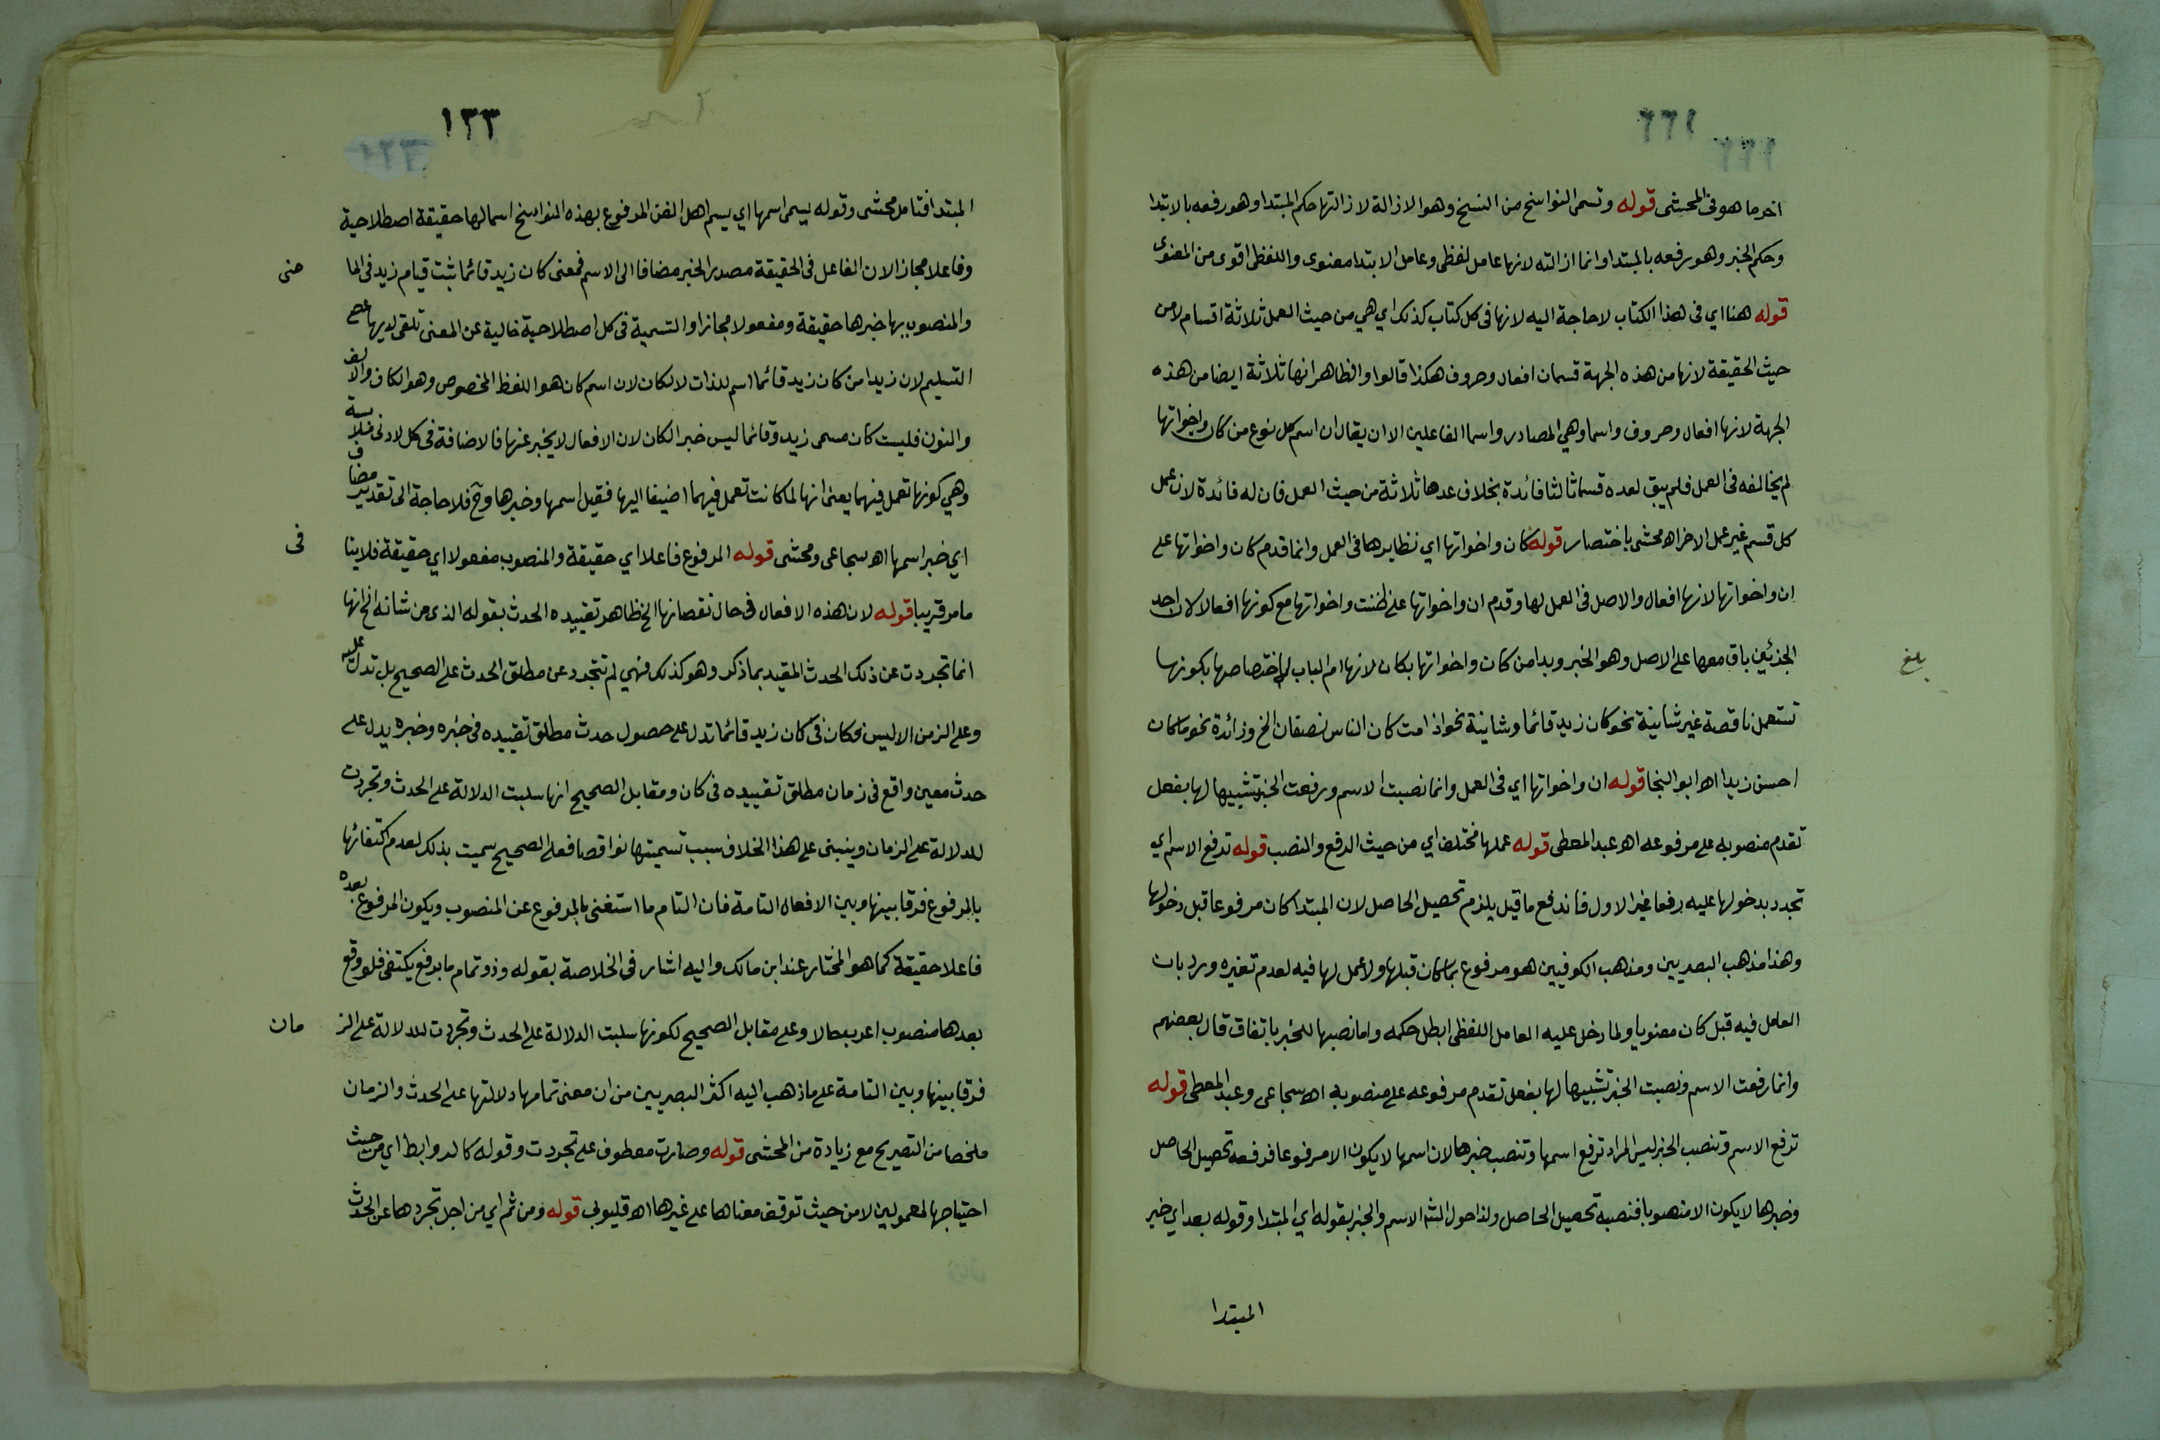 اخر ما هو فى المحشى قوله وتسمى النواسخ من النسخ وهو الازالة لازالتها حكم المبتدا وهو رفعه بالابتدا
وحكم الخبر وهو رفعه بالمبتدا وانما ازالته لانها عامل لفظى وعامل الابتدا معنوى واللفظى اقوى من المعنوى
قوله هنا اي فى هذا الكتاب لا حاجة اليه لانها فى كل كتاب كذلك اي هي من حيث العمل ثلاثة اقسام لا من
حيث الحقيقة لانها من هذه الجهة قسمان افعال وحروف هكذا قالوا والظاهر انها ثلاثة ايضا من هذه
الجهة لانها افعال وحروف واسما وهي المصادر واسما الفاعلين الا ان يقال ان اسم كل نوع من كان واخواتها
لم يخالفه فى العمل فلم يبق لعده قسما ثالثا فائدة بخلاف عدها ثلاثة من حيث العمل فان له فائدة لان عمل
كل قسم غير عمل الاخر اه محشى باختصار قوله كان واخواتها اي نظايرها فى العمل وانما قدم كان واخواتها على
ان واخواتها لانها افعال والاصل فى العمل لها وقدم ان واخواتها على ظننت واخواتها مع كونها افعالا لان احد
الجزئين باق معها على الاصل وهو الخبر وبدا من كان واخواتها بكان لانها ام الباب لاختصاصها بكونها
بلغ
تستعمل ناقصة غير شانية نحو كان زيد قائما وشانية نحو اذا مت كان الناس نصفان الخ وزائدة نحو ما كان
احسن زيدا اه ابو النجا قوله ان واخواتها اي فى العمل وانما نصبت الاسم ورفعت الخبر تشبيها لها بفعل
تقدم منصوبه على مرفوعه اه عبد المعطى قوله عملها مختلف اي من حيث الرفع والنصب قوله ترفع الاسم اي
تجدد بدخولها عليه رفعا غير الاول فاندفع ما قيل يلزم تحصيل الحاصل لان المبتدا كان مرفوعا قبل دخولها
وهذا مذهب البصريين ومذهب الكوفيين هو مرفوع بما كان قبلها ولا عمل لها فيه لعدم تغيره ورد بان
العامل فيه قبل كان معنويا ولما دخل عليه العامل اللفظى ابطل حكمه واما نصبها للخبر باتفاق قال بعضهم
وانما رفعت الاسم ونصبت الخبر تشبيها لها بفعل تقدم مرفوعه على منصوبه اه سجاعى وعبد المعطى قوله
ترفع الاسم وتنصب الخبر ليس المراد ترفع اسمها وتنصب خبرها لان اسمها لا يكون الا مرفوعا فرفعه تحصيل الحاصل
وخبرها لا يكون الا منصوبا فنصبه تحصيل الحاصل ولذا حول الش الاسم والخبر بقوله اي المبتدا وقوله بعد اي خبر
المبتدا
١٣٣
المبتدا فتامل محشى وقوله يسمى اسمها اي يسم اهل الفن المرفوع بهذه النواسخ اسما لها حقيقة اصطلاحية
وفاعلا مجازا لان الفاعل فى الحقيقة مصدر الخبر مضافا الى الاسم فمعنى كان زيد قائما ثبت قيام زيد فى الما
ضى
والمنصوب بها خبرها حقيقة ومفعولا مجازا والتسمية فى كل اصطلاحية خالية عن المعنى تلقى لديها عصى
التسليم لان زيدا من كان زيد قائما اسم للذات لا لكان لان اسم كان هو اللفظ المخصوص وهو الكاف والالف
والنون فليست كان مسمى زيد وقائما ليس خبر الكان لان الافعال لا يخبر عنها فالاضافة فى كل لادنى ملابسة
وهي كونها تعمل فيهما يعنى انها لما كانت تعمل فيهما اضيفا اليها فقيل اسمها وخبرها وح فلا حاجة الى تقدير مضاف
اي خبر اسمها اه سجاعى ومحشى قوله المرفوع فاعلا اي حقيقة والمنصوب مفعولا اي حقيقة فلا ينا
فى
ما مر قريبا قوله لان هذه الافعال فى حال نقصانها الخ ظاهر تقييده الحدث بقوله الذى من شانه الخ انها
انما تجردت عن ذلك الحدث المقيد بما ذكر وهو كذلك فهي لم تتجرد عن مطلق الحدث على الصحيح بل تدل عليه
وعلى الزمن الا ليس فكان فى كان زيد قائما تدل على حصول حدث مطلق تقييده فى خبره وخبره يدل على
حدث معين واقع فى زمان مطلق تقييده فى كان ومقابل الصحيح انها سلبت الدلالة على الحدث وتجردت
للدلالة على الزمان وينبنى على هذا الخلاف سبب تسميتها نواقصا فعلى الصحيح سميت بذلك لعدم اكتفائها
بالمرفوع فرقا بينها وبين الافعال التامة فان التام ما استغنى بالمرفوع عن المنصوب ويكون المرفوع بعده
فاعلا حقيقة كما هو المختار عند ابن مالك واليه اشار فى الخلاصة بقوله وذو تمام ما برفع يكتفى فلو وقع
بعدها منصوب اعرب حالا وعلى مقابل الصحيح لكونها سلبت الدلالة على الحدث وتجردت للدلالة على الز
مان
فرقا بينها وبين التامة على ما ذهب اليه اكثر البصريين من ان معنى تمامها دلالتها على الحدث والزمان
ملخصا من التصريح مع زيادة من المحشى قوله وصارت معطوف على تجردت وقوله كالروابط اي من حيث
احتياجها لمعمولين لا من حيث توقف معناها على غيرها اه قليوبى قوله ومن ثم اي من اجل تجردها عن الحدث